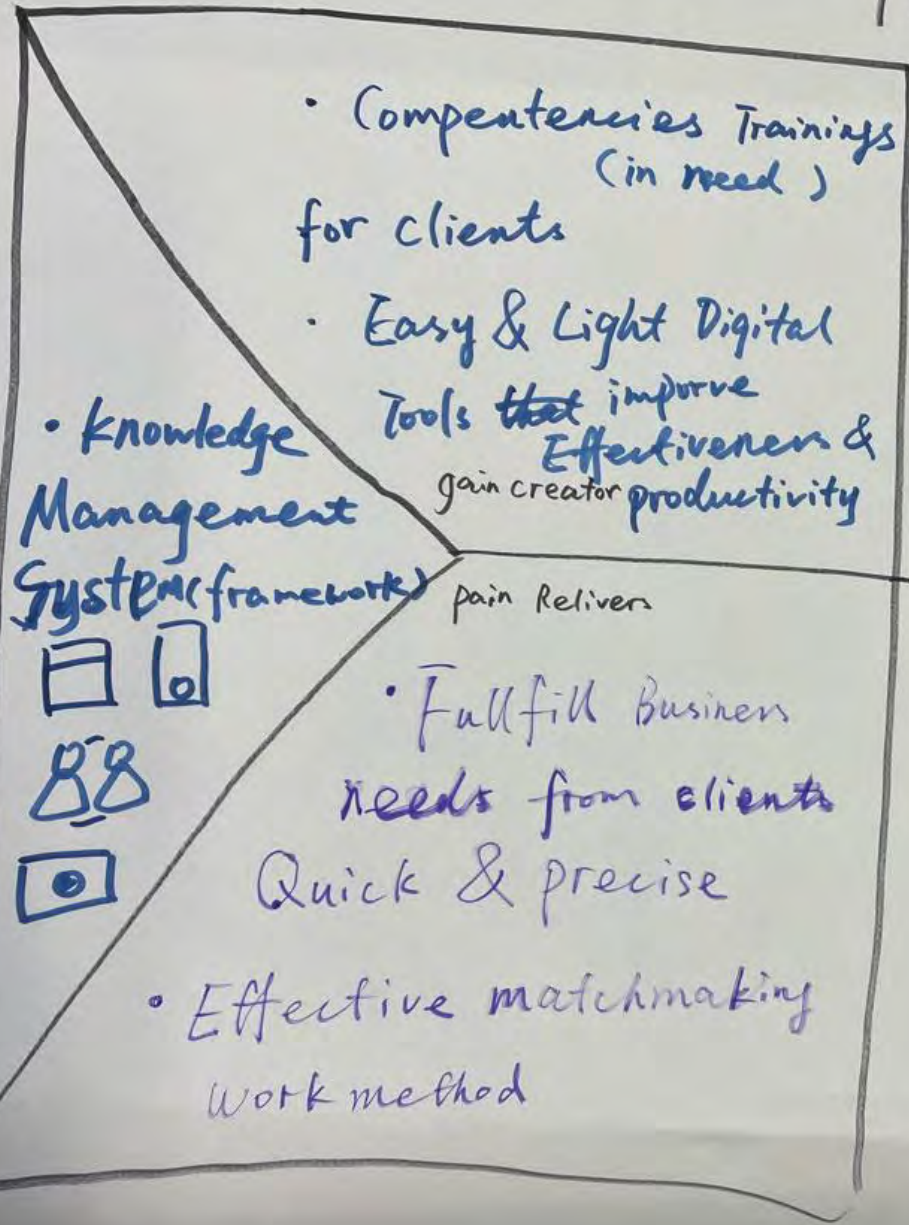 · Compentencies Trainings
(in need)
for clients
· Easy & Light Digital
Tools that imporve
Effectiveness &
gain creator productivity
· Knowledge
Management
System(framework)
pain Relivers
· Fullfill Business
needs from clients
Quick & precise
· Effective matchmaking
work method